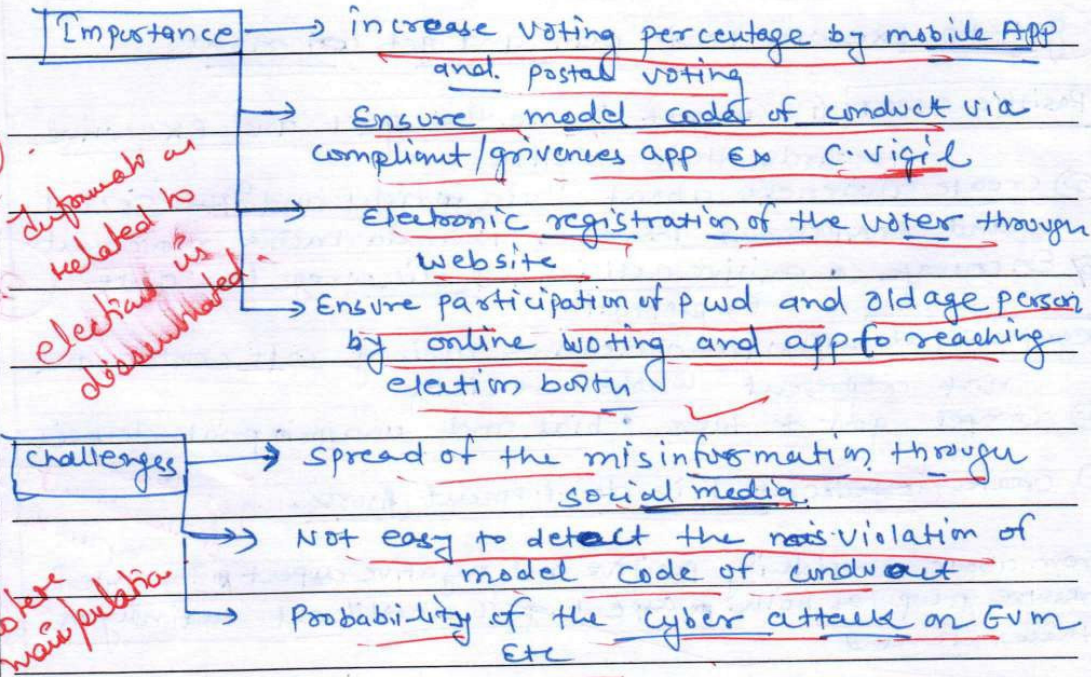 Importance → increase voting percentage by mobile App
and postal voting
→ Ensure model code of conduct via
compliant/grivences app Ex C-vigil
→ Electronic registration of the voter through
website
→ Ensure participation of pwd and old age person
by online woting and app fo reaching
eletion booth
Informati as
related to
elections is
dissemnated.
Challenges → Spread of the misinformation through
social media.
→ Not easy to detect the violation of
model code of conduct
→ Probability of the cyber attack on Evm
Etc
manipulation